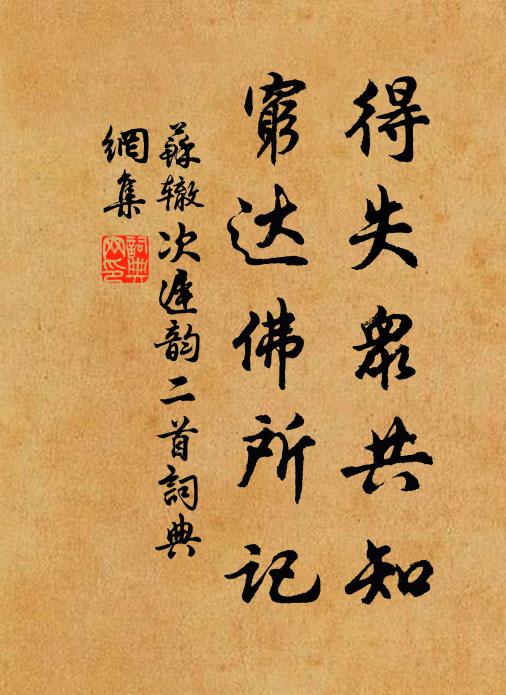 得失衆共知
窮达佛所记
蘇辙次遲韵二首詞典
網集
詞典
网印